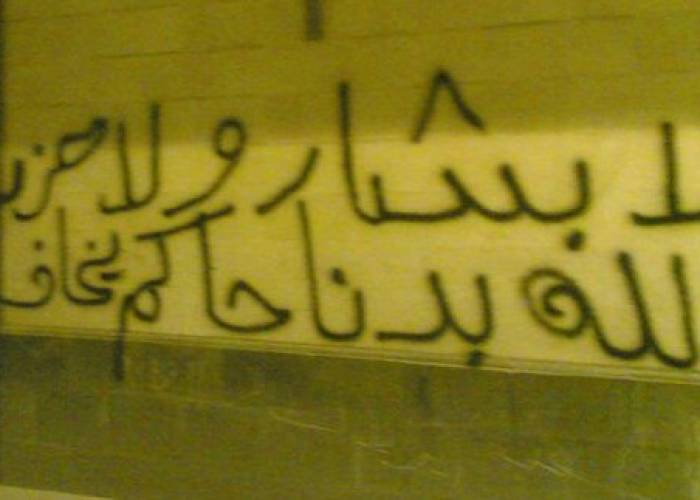 لا بشار ولا حزب
الله بدنا حاكم يخاف